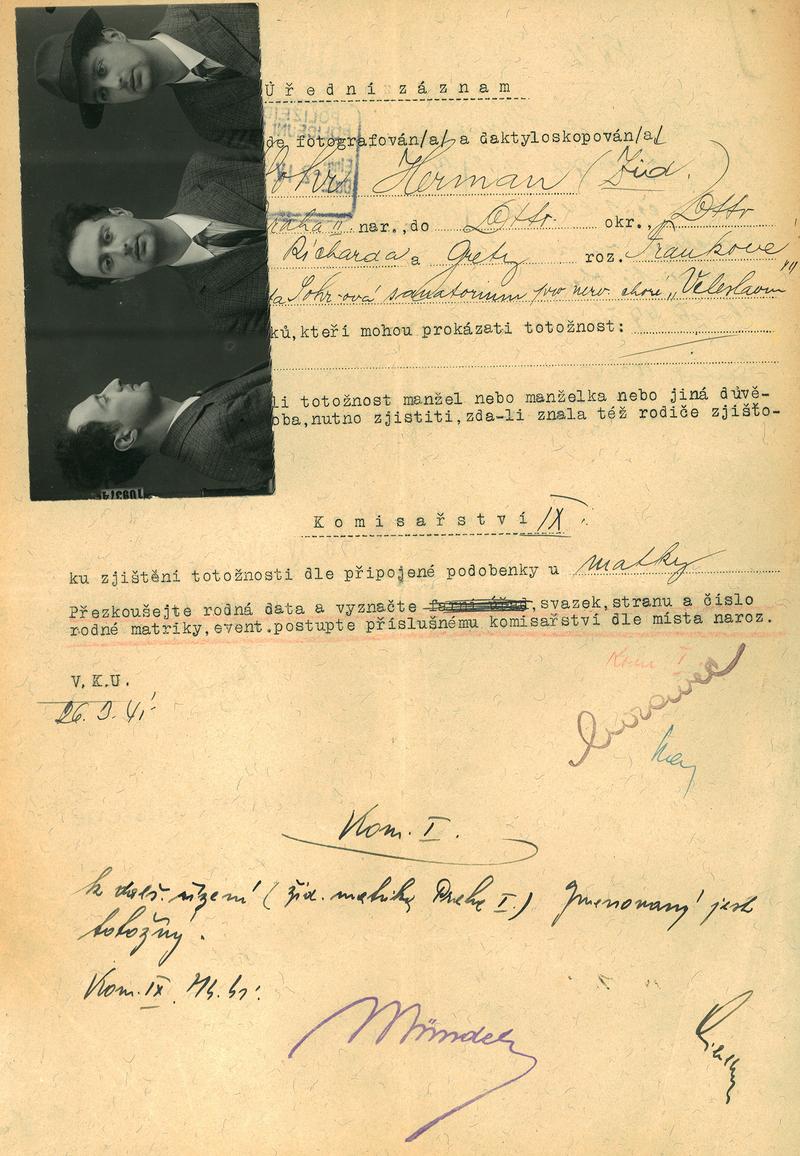 Úřední záznam
de fotografován/a/ a daktyloskopován/a/
Herman (Žid.)
nar.,do Lotr. okr., Lotr
Richarda a Grety roz. Frankové
sanatorium pro nerv. choré „Veleslavín"
ků,kteří mohou prokázati totožnost:
li totožnost manžel nebo manželka nebo jiná důvě-
oba,nutno zjistiti,zda-li znala též rodiče zjišťo-
Komisařství IX.
ku zjištění totožnosti dle připojené podobenky u matky
Přezkoušejte rodná data a vyznačte, svazek,stranu a číslo
rodné matriky,event.postupte příslušnému komisařství dle místa naroz.
Kom I
V.K.U.
Kom. I.
k dalš. řízení (žid. matrika Praha I.) Jmenovaný jest
totožný.
Kom. IX